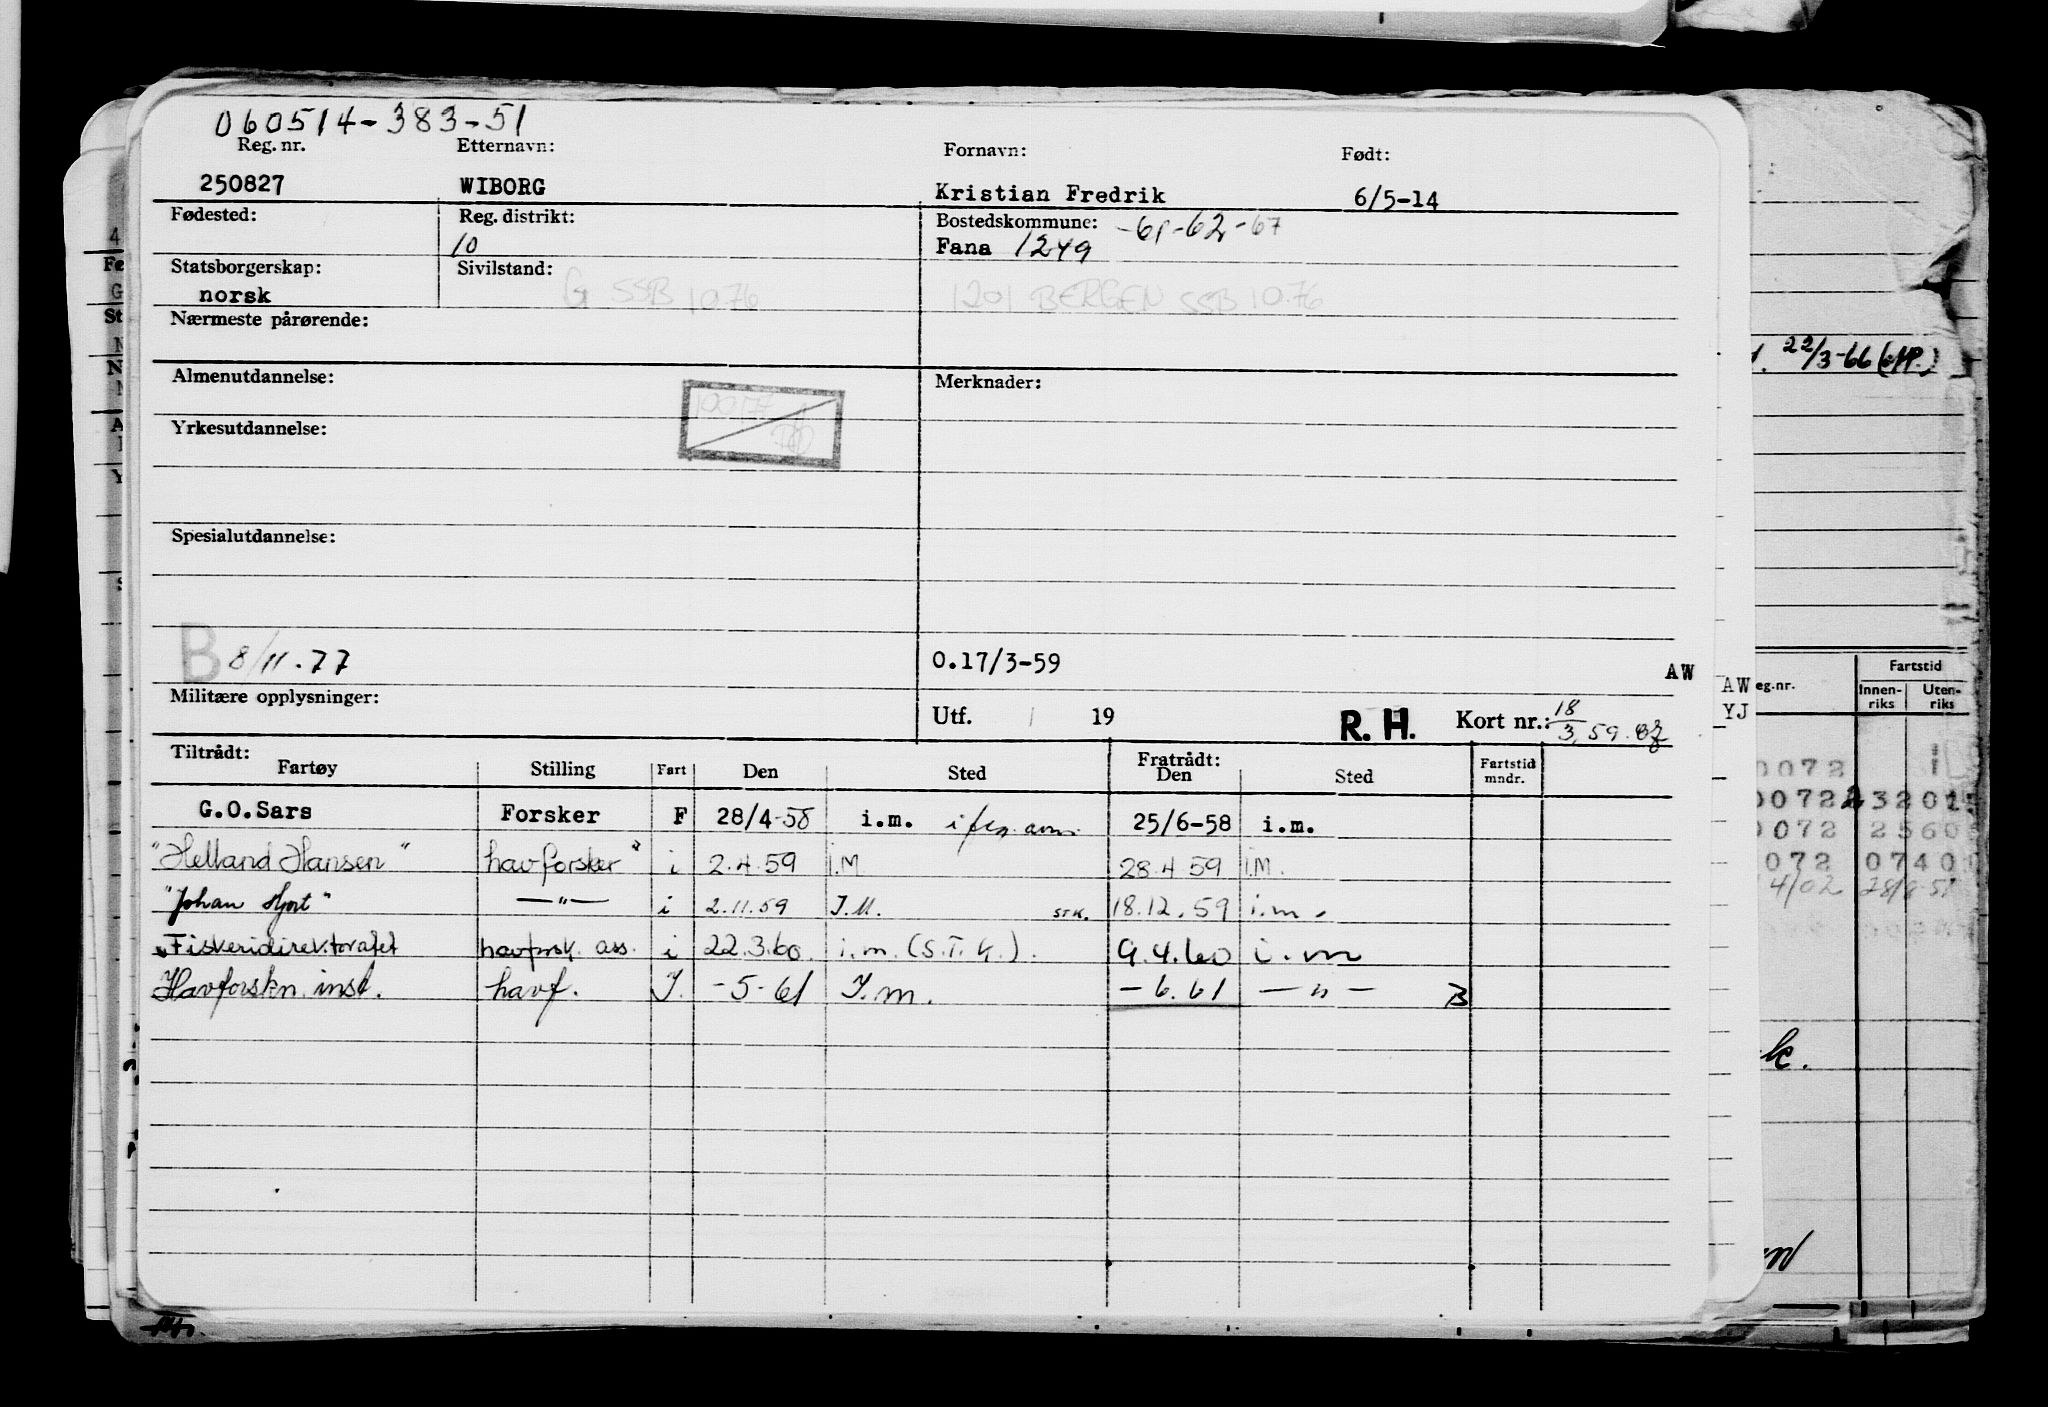 060514-383-51
Reg. nr. Etternavn: Fornavn: Født:
250827 WIBORG Kristian Fredrik 6/5-14
Fødested: Reg. distrikt: Bostedskommune: -61-62-67
10 Fana 1249
Statsborgerskap: Sivilstand:
norsk G SSB 10.76 1201 BERGEN SSB 10.76
Nærmeste pårørende:
Almenutdannelse: Merknader:
Yrkesutdannelse:
Spesialutdannelse:
B 8/11.77 0.17/3-59 AW
Militære opplysninger: Utf. 19 R. H. Kort nr.: 18/3.59
Tiltrådt: Fratrådt:
Fartøy Stilling Fart Den Sted Den Sted Fartstid mndr.
G.O.Sars Forsker F 28/4-58 i.m. 25/6-58 i.m.
"Helland Hansen" havforsker" i 2.4.59 I.M 28.4.59 I.M.
"Johan Hjort" —"— i 2.11.59 I.M. STK. 18.12.59 i.m.
Fiskeridirektoratet havforsk. ass. i 22.3.60. i.m. (S.T.K.). 9.4.60 i.m
Havforskn. inst. havf. I. -5-61 I.m. -6.61 —"— B
22/3-66
AW
YJ
eg.nr. Fartstid
Innen-riks Uten-riks
0072
0072 3201
0072 2560
072 0740
4/02
k.